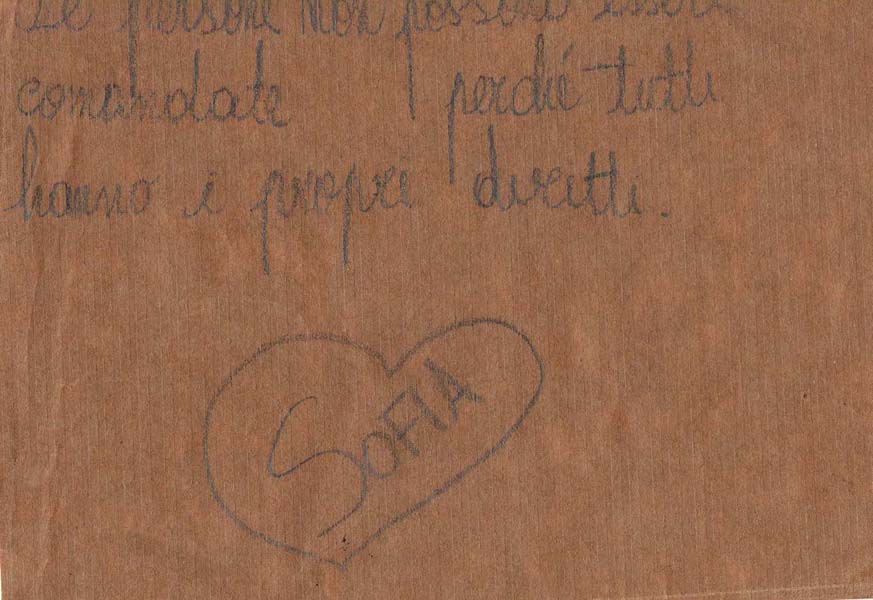 Le persone non possono essere
comandate perché tutti
hanno i propri diritti.
SOFIA